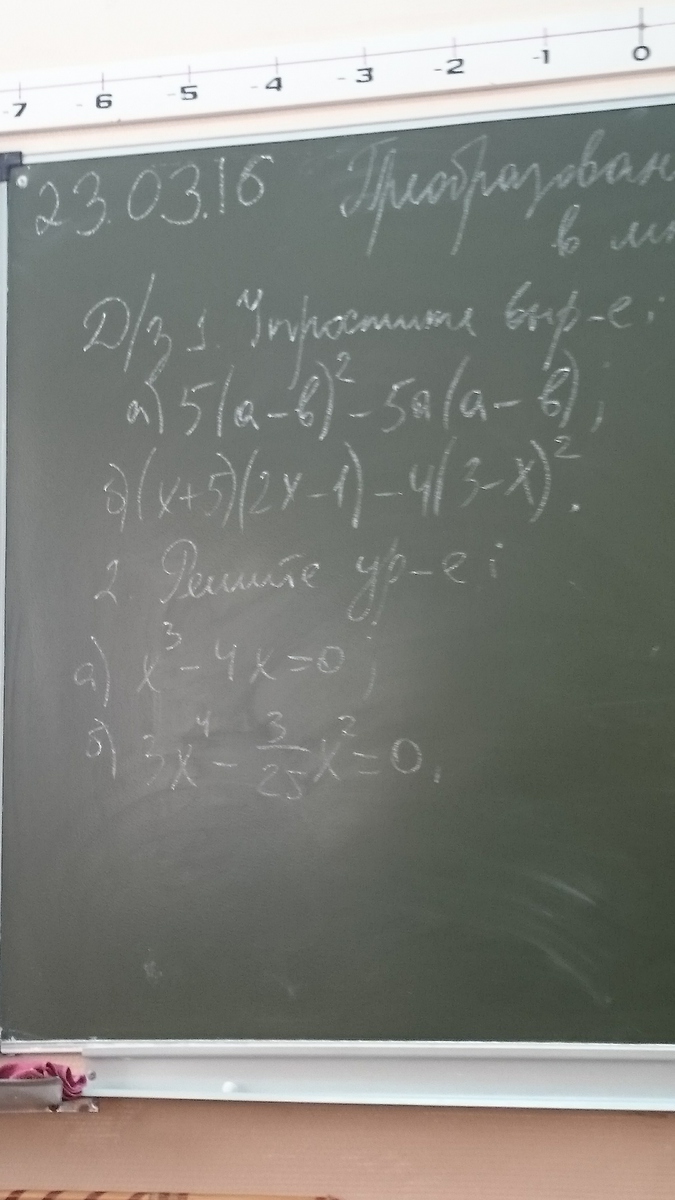 -7 -6 -5 -4 -3 -2 -1 0
23.03.16 Преобразован
в
Д/з 1. Упростите выр-е:
а) 5(а-в)² - 5а(а-в);
б) (х+5)(2х-1) - 4(3-х)².
2. Решите ур-е:
а) х³ - 4х = 0;
б) 3х⁴ - 3/25 х² = 0.